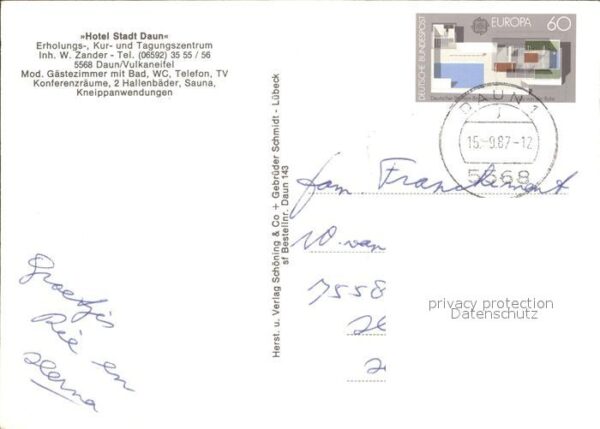 »Hotel Stadt Daun«
Erholungs-, Kur- und Tagungszentrum
Inh. W. Zander - Tel. (06592) 35 55 / 56
5568 Daun/Vulkaneifel
Mod. Gästezimmer mit Bad, WC, Telefon, TV
Konferenzräume, 2 Hallenbäder, Sauna,
Kneippanwendungen
DEUTSCHE BUNDESPOST
EUROPA 60
DAUN 1
15.-9.87-12
5568
Herst. u. Verlag Schöning & Co + Gebrüder Schmidt - Lübeck
sf Bestellnr. Daun 143
fam. Franckimont
10. van
7558
privacy protection
Datenschutz
Groetjes
Rie en
Herna